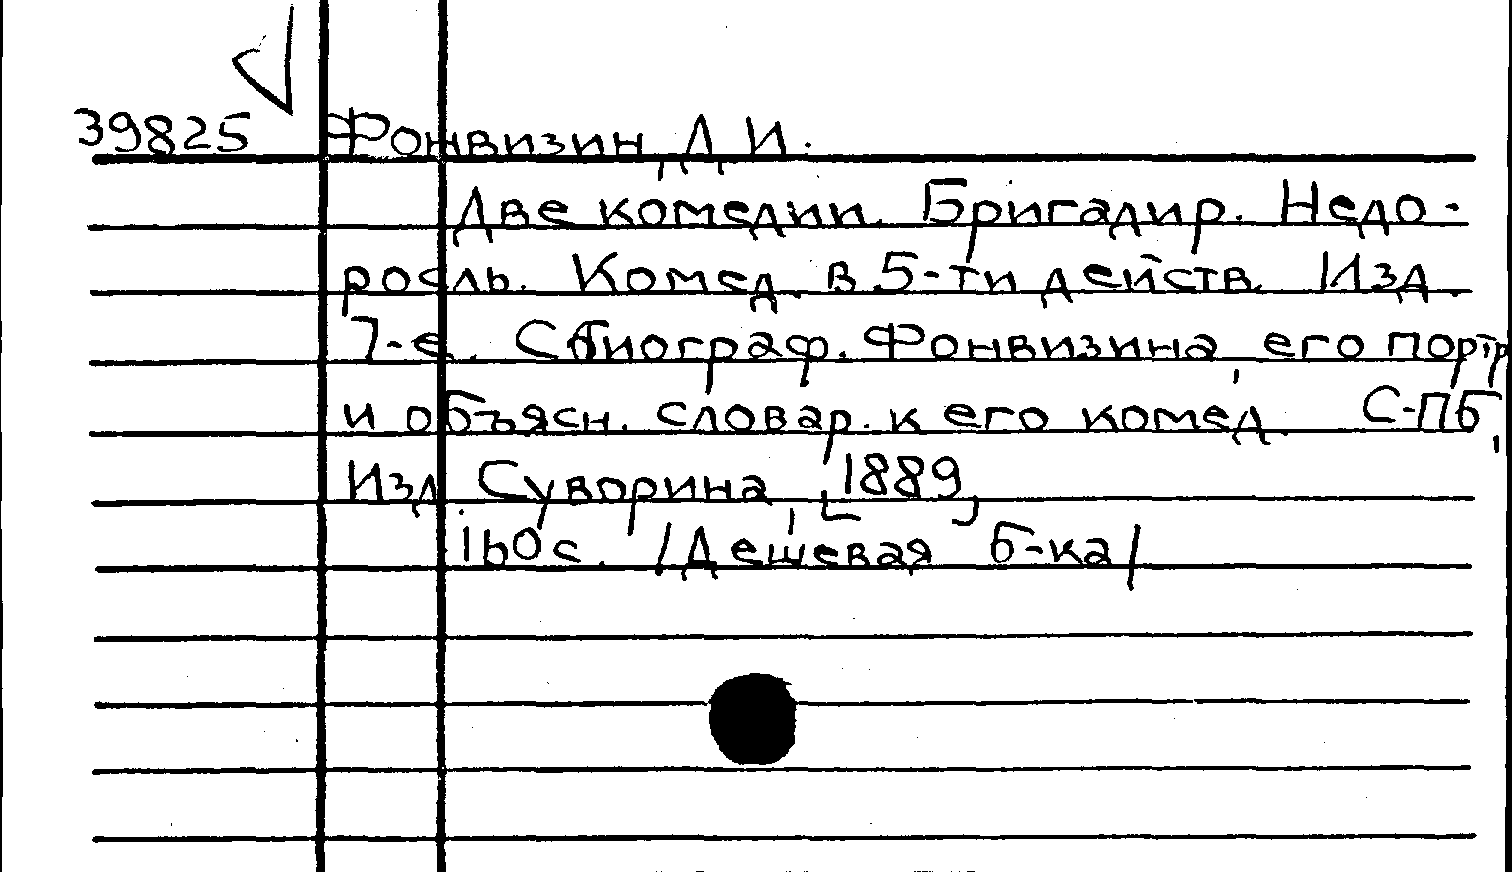 39825 Фонвизин, Д. И.
Две комедии. Бригадир. Недо-
росль. Комед. в 5-ти действ. Изд.
7-е. С биограф. Фонвизина, его портр
и объясн. словар. к его комед. С-Пб,
Изд. Суворина, [1889]
160 с. /Дешевая б-ка/